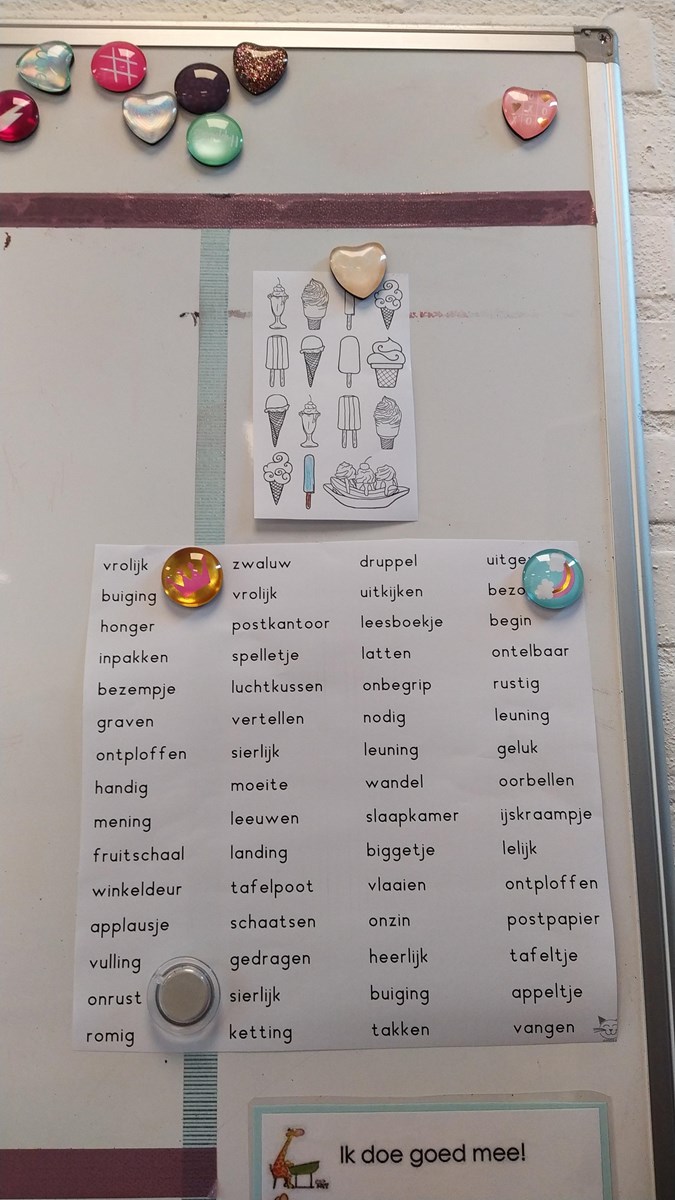 vrolijk zwaluw druppel
buiging vrolijk uitkijken
honger postkantoor leesboekje begin
inpakken spelletje latten ontelbaar
bezempje luchtkussen onbegrip rustig
graven vertellen nodig leuning
ontploffen sierlijk leuning geluk
handig moeite wandel oorbellen
mening leeuwen slaapkamer ijskraampje
fruitschaal landing biggetje lelijk
winkeldeur tafelpoot vlaaien ontploffen
applausje schaatsen onzin postpapier
vulling gedragen heerlijk tafeltje
onrust sierlijk buiging appeltje
romig ketting takken vangen
Ik doe goed mee!